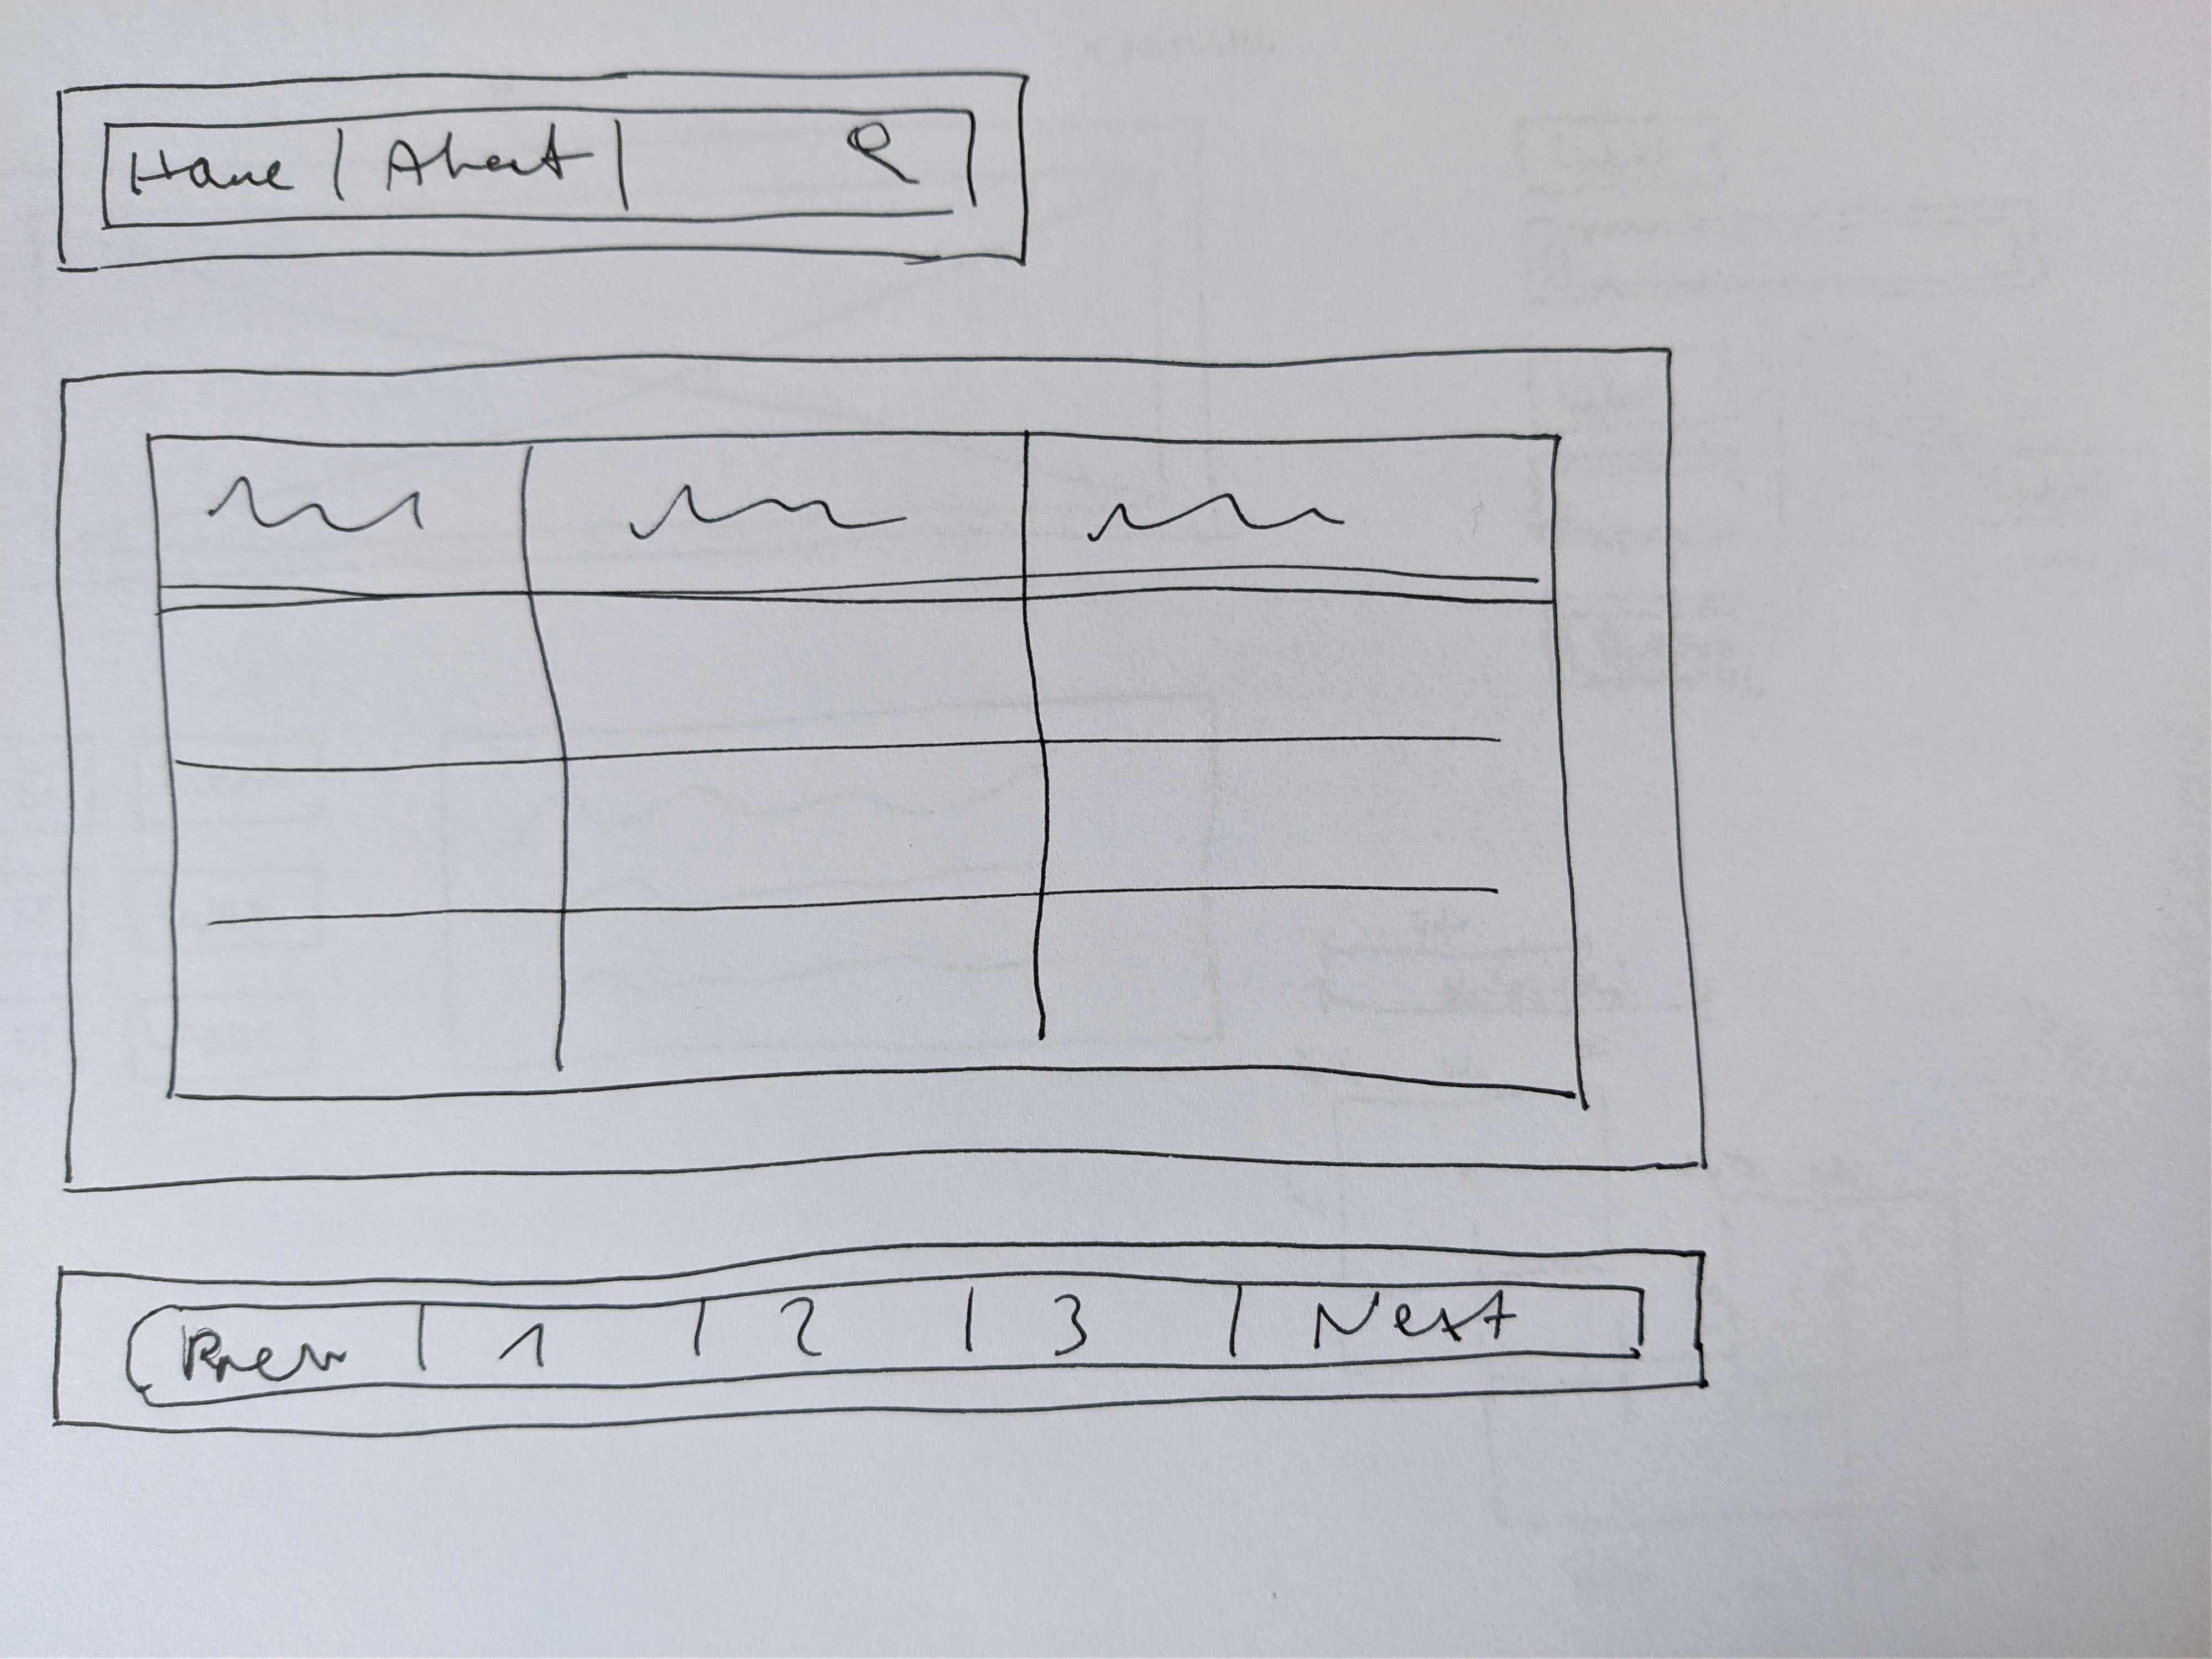 Home About
Prev 1 2 3 Next